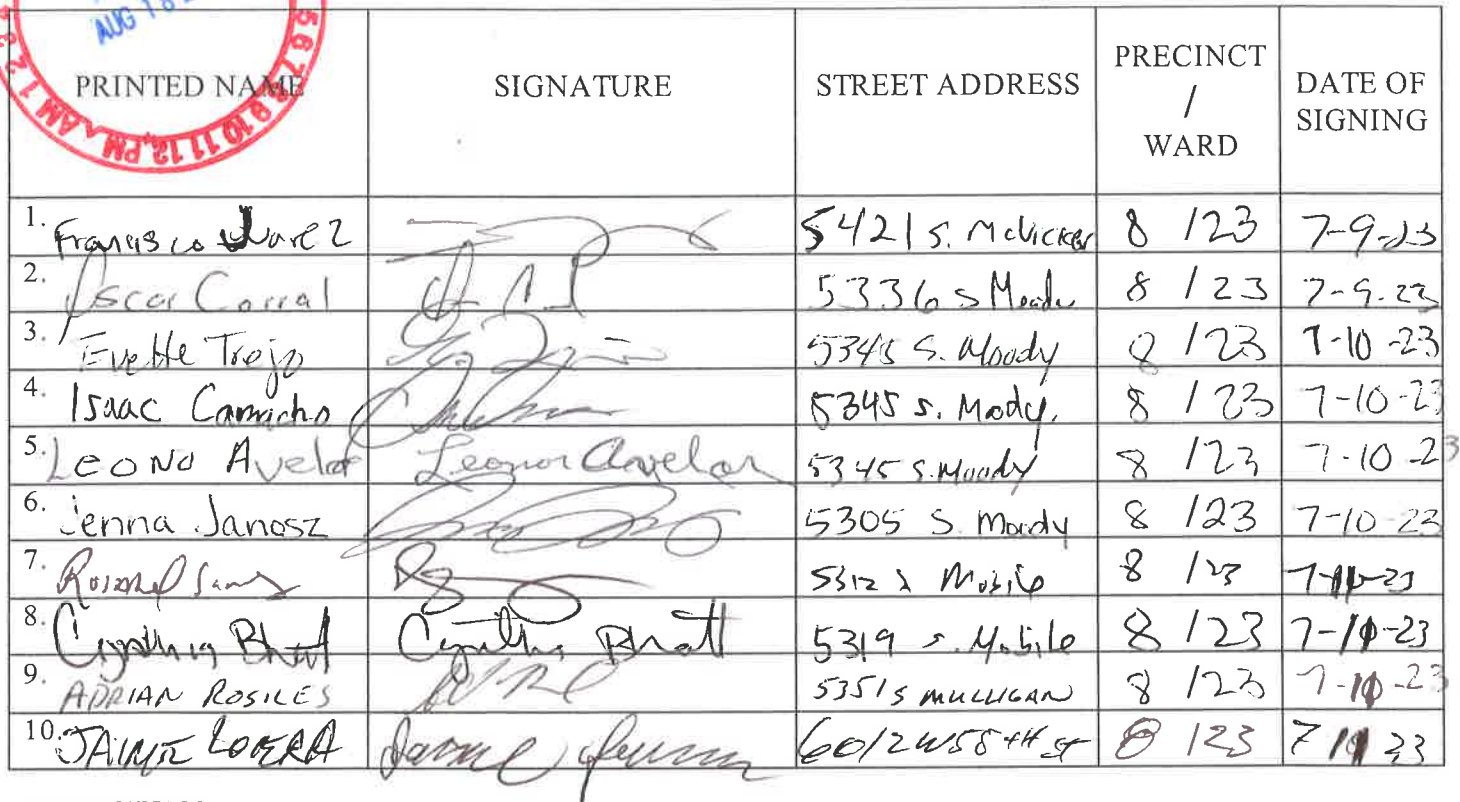 AUG 18
5 6 7 8 9 10 11 12 PM AM 1 2 3
PRINTED NAME SIGNATURE STREET ADDRESS PRECINCT / WARD DATE OF SIGNING
1. Francisco Juarez 5421 S. McVicker 8 /23 7-9-23
2. Oscar Corral 5336 S Moody 8 /23 7-9-23
3. Evette Trejo 5345 S. Moody 8 /23 7-10-23
4. Isaac Camacho 5345 S. Moody. 8 /23 7-10-23
5. LEONO Avelar Leonor Avelar 5345 S. Moody 8 /23 7-10-23
6. Jenna Janosz 5305 S. Moody 8 /23 7-10-23
7. 5312 S Mobile 8 /23
8. Cynthia Bhatt Cynthia Bhatt 5319 S. Mobile 8 /23
9. ADRIAN ROSILES 5351 S MULLIGAN 8 /23
10. JAIME LOERA Jaime 6012 W 58TH St 8 /23